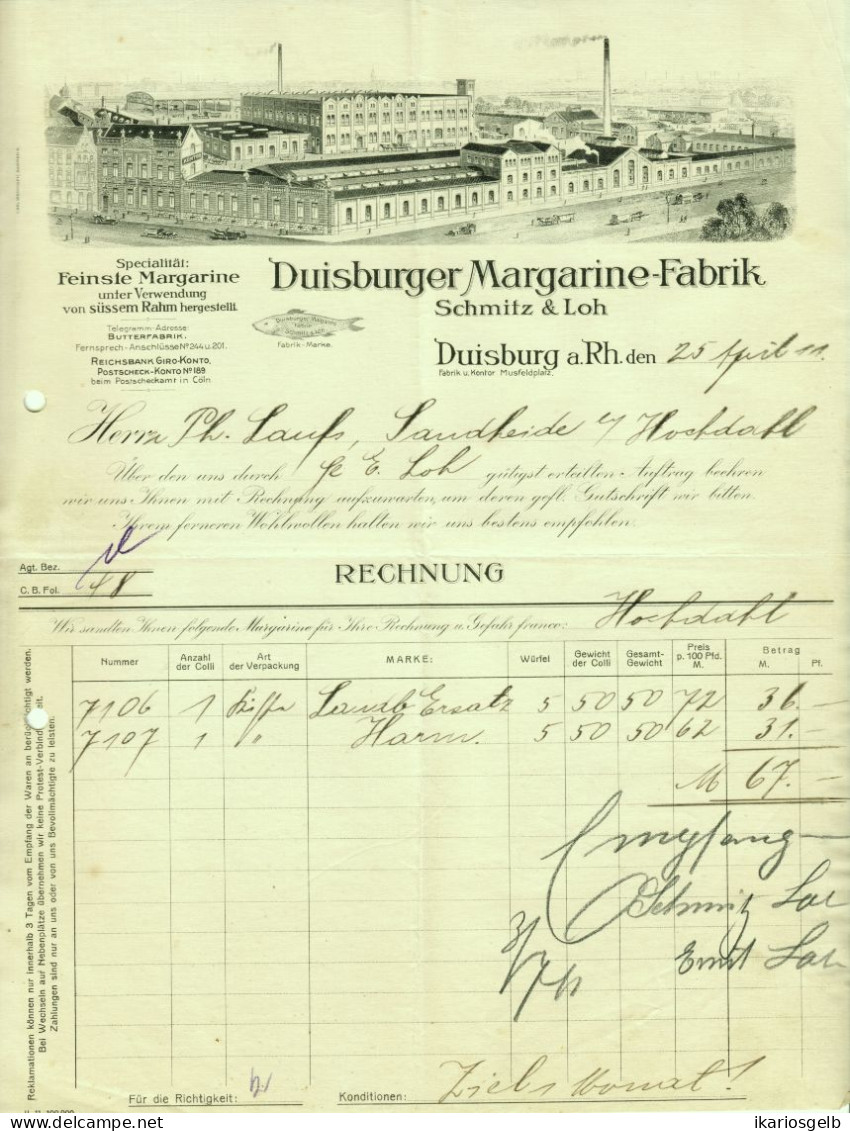 Specialität:
Feinste Margarine
unter Verwendung
von süssem Rahm hergestellt.
Telegramm-Adresse:
BUTTERFABRIK.
Fernsprech-Anschlüsse Nº 244 u. 201.
REICHSBANK GIRO-KONTO.
POSTSCHECK-KONTO Nº 189
beim Postscheckamt in Cöln.
Duisburger Margarine-Fabrik
Schmitz & Loh
Duisburger Margarine
Fabrik
Schmitz & Loh
Fabrik-Marke.
Duisburg a. Rh. den 25 April 11.
Fabrik u. Kontor Musfeldplatz.
Herrn Ph. Laufs, Sandheide b/ Hochdahl
Über den uns durch Hr E. Loh gütigst erteilten Auftrag beehren
wir uns Ihnen mit Rechnung aufzuwarten, um deren gefl. Gutschrift wir bitten.
Ihrem ferneren Wohlwollen halten wir uns bestens empfohlen.
Agt. Bez.
C. B. Fol. 48
RECHNUNG
Wir sandten Ihnen folgende Margarine für Ihre Rechnung u. Gefahr franco: Hochdahl
Nummer Anzahl der Colli Art der Verpackung MARKE: Würfel Gewicht der Colli Gesamt-Gewicht Preis p. 100 Pfd. M. Betrag M. Pf.
7106 1 Kiste Landb Ersatz 5 50 50 72 36.—
7107 1 " Harm. 5 50 50 62 31.—
M 67.—
Empfang
Schmitz Loh
3/7 11
Ernst Loh
Reklamationen können nur innerhalb 3 Tagen vom Empfang der Waren an berücksichtigt werden.
Bei Wechseln auf Nebenplätze übernehmen wir keine Protest-Verbindlichkeit.
Zahlungen sind nur an uns oder von uns Bevollmächtigte zu leisten.
Für die Richtigkeit:
Konditionen: Ziel 1 Monat!
ikariosgelb